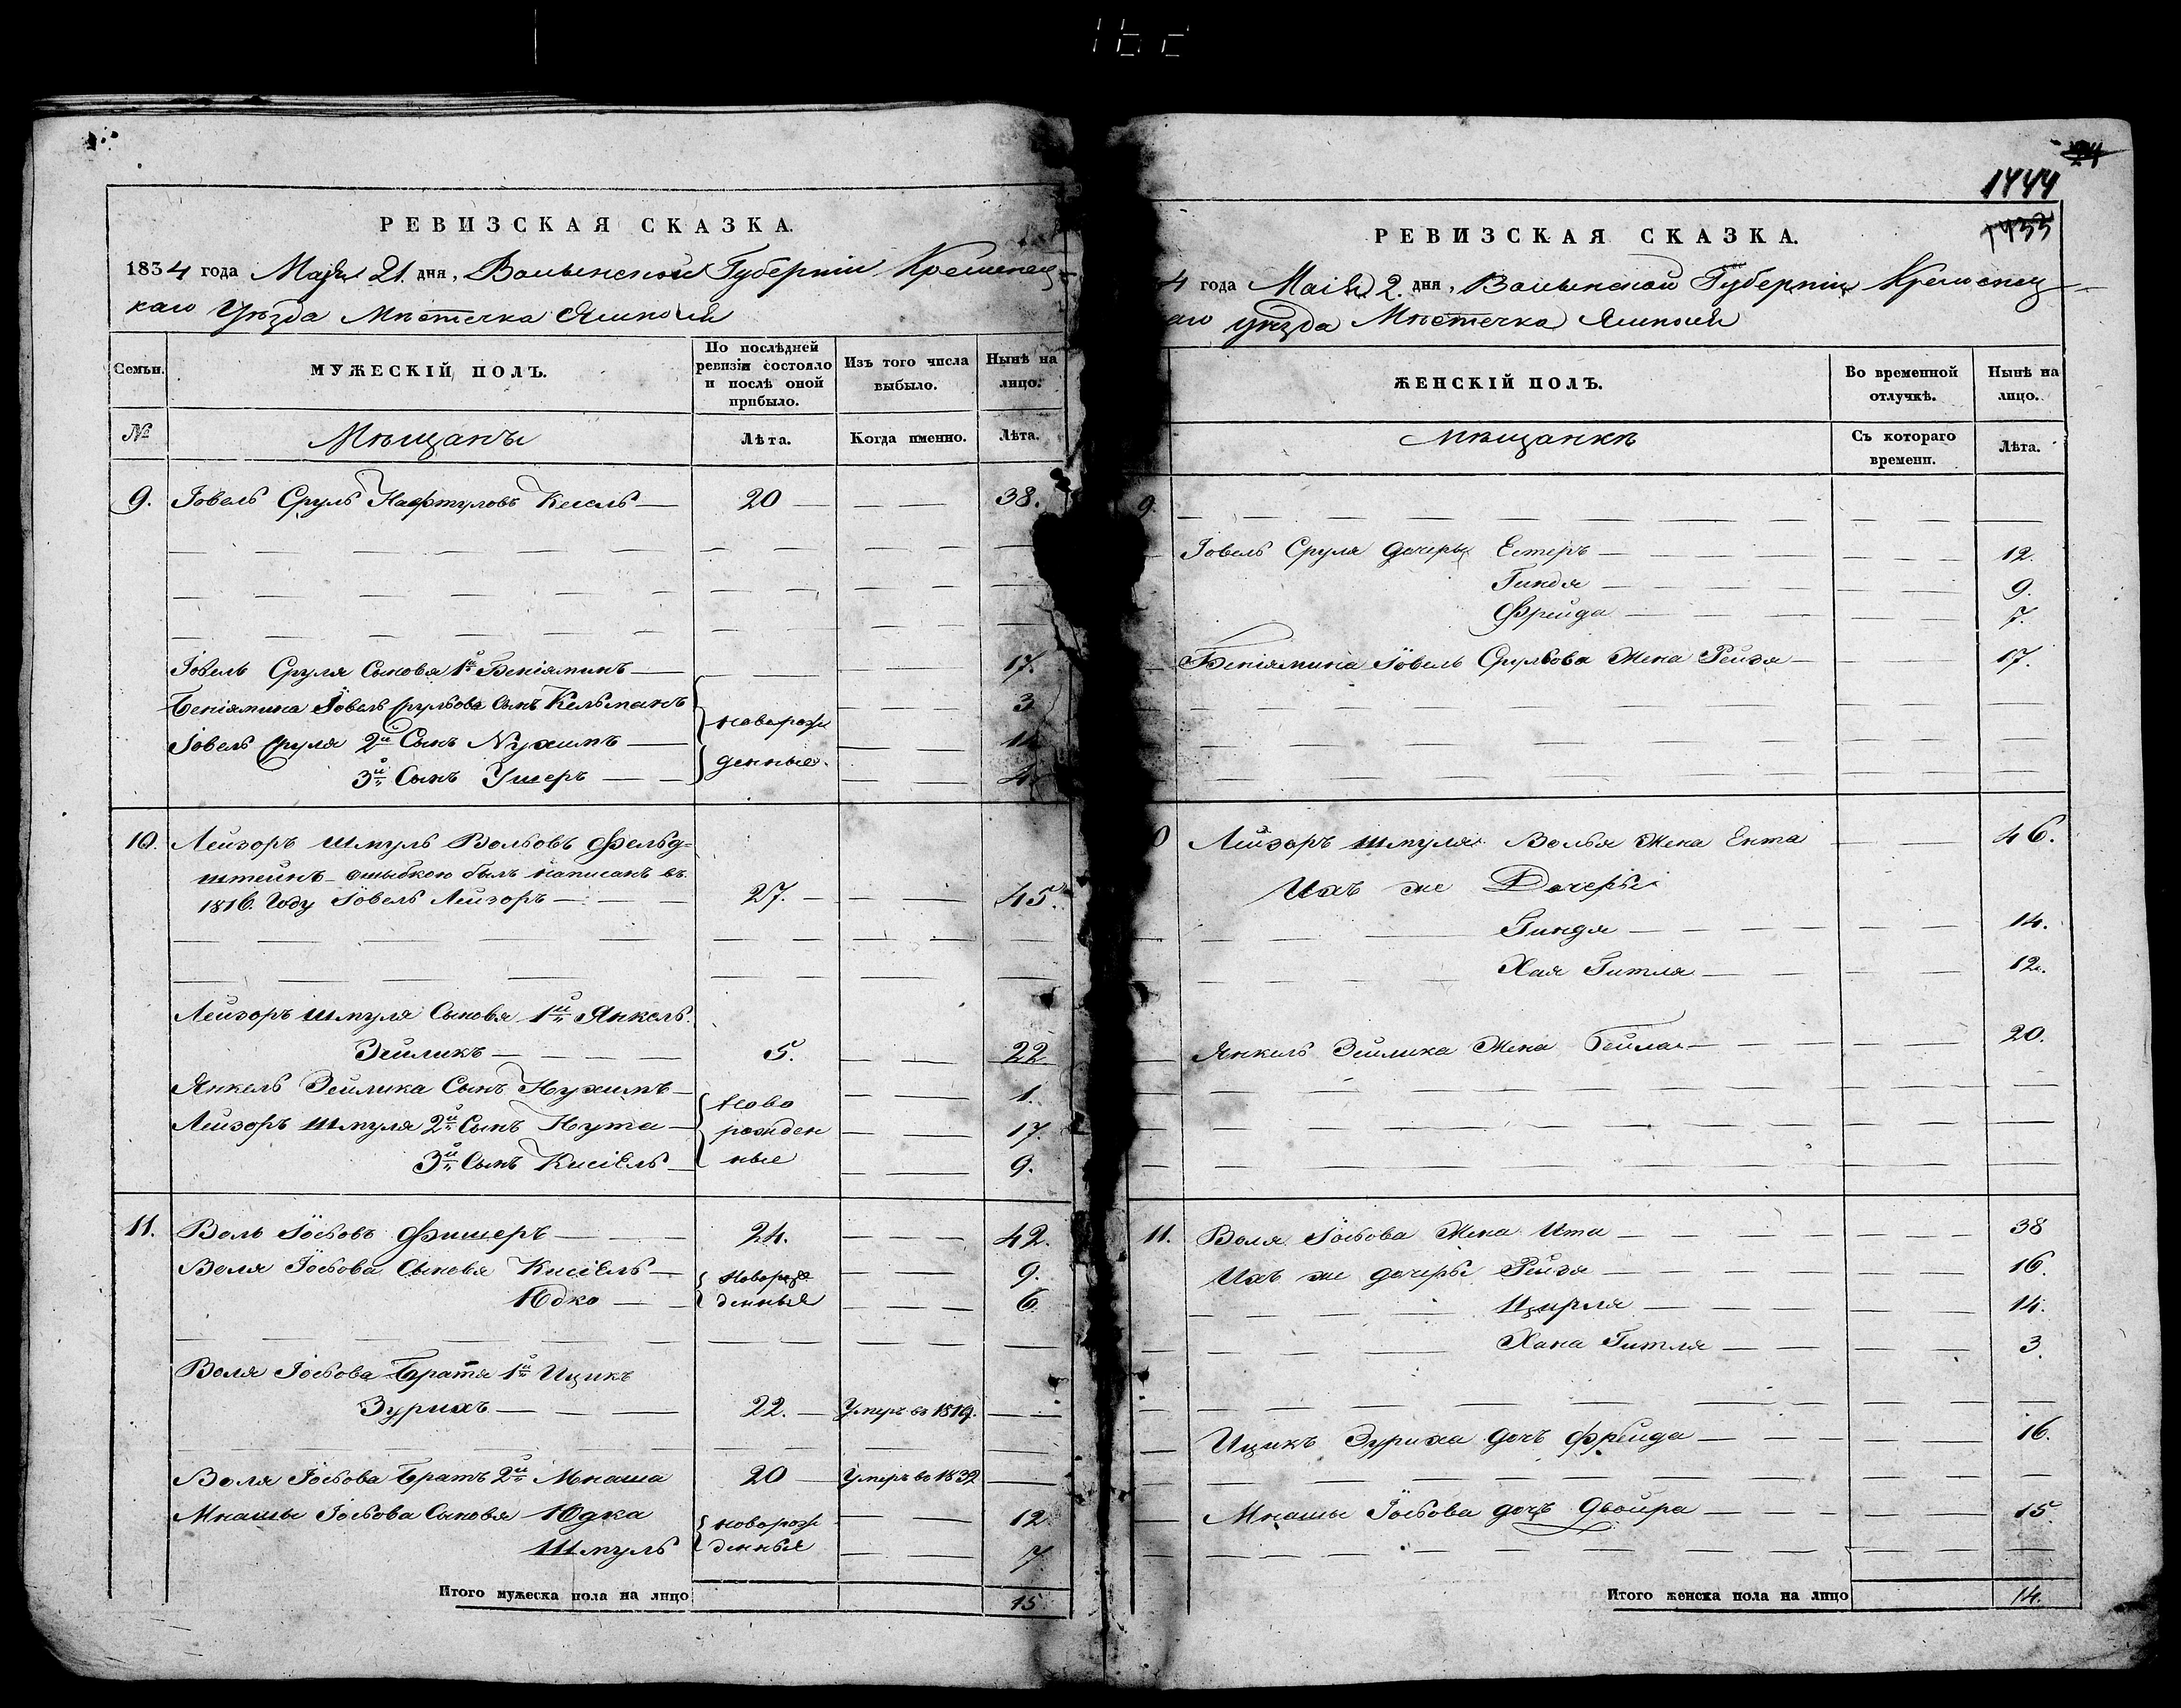 1444
24
1433
РЕВИЗСКАЯ СКАЗКА.
1834 года Маія 21. дня, Волынской Губерніи Кременец-
каго Уѣзда Мѣстечка Ямполя
Семьи.
МУЖЕСКІЙ ПОЛЪ.
По послѣдней ревизіи состояло и послѣ оной прибыло.
Изъ того числа выбыло.
Нынѣ на лицо.
№
Мѣщанъ
Лѣта.
Когда именно.
Лѣта.
9. Іовель Сруль Нафтуловъ Кесель 20 38.
Іовель Сруля Сыновья 1й Беніяминъ 17.
Беніямина Іовель Срульова Сынъ Кельманъ 3
новорож
Іовель Сруля 2й Сынъ Нухимъ 11
денные
3й Сынъ Ушеръ 4
10. Лейзоръ Шмуль Вольовъ Фельд=
штейнъ ошибкою былъ написанъ въ
1816. Году Іовель Лейзоръ 27. 45.
Лейзоръ Шмуля Сыновья 1й Янкель
Зейликъ 5. 22
Янкель Зейлика Сынъ Нухимъ 1.
Ново
Лейзоръ Шмуля 2й Сынъ Нута рожден 17.
3й Сынъ Кисіель ные 9.
11. Воль Іосьовъ Фишеръ 24. 42.
Воля Іосьова Сыновья Кисіель Новорож 9.
Юдко денныя 6.
Воля Іосьова Братья 1й Ицикъ
Зурихъ 22. Умеръ въ 1819.
Воля Іосьова Братъ 2й Мнаша 20 Умеръ во 1832
Мнашы Іосьова Сыновья Юдка новорож 12.
Шмуль денныя 7
Итого мужеска пола на лицо 15
РЕВИЗСКАЯ СКАЗКА.
4 года Маія 2. дня, Волынской Губерніи Кременец-
аго уѣзда Мѣстечка Ямполя
ЖЕНСКІЙ ПОЛЪ.
Во временной отлучкѣ.
Нынѣ на лицо.
Мѣщанкѣ
Съ котораго времени.
Лѣта.
9.
Іовель Сруля дочеры Естеръ 12.
Гиндя 9.
Фрейда 7.
Беніямина Іовель Срульова Жена Рейзя 17.
0 Лейзоръ Шмуля Волья Жена Ента 46.
Ихъ же Дочеры
Гиндя 14.
Хая Гитля 12.
Янкель Зейлика Жена Бейла 20.
11. Воля Іосьова Жена Ита 38
Ихъ же дочеры Рейзя 16.
Цирля 14.
Хана Гитля 3.
Ицикъ Зуриха дочъ Фрейда 16.
Мнашы Іосьова дочъ Двойра 15.
Итого женска пола на лицо 14.